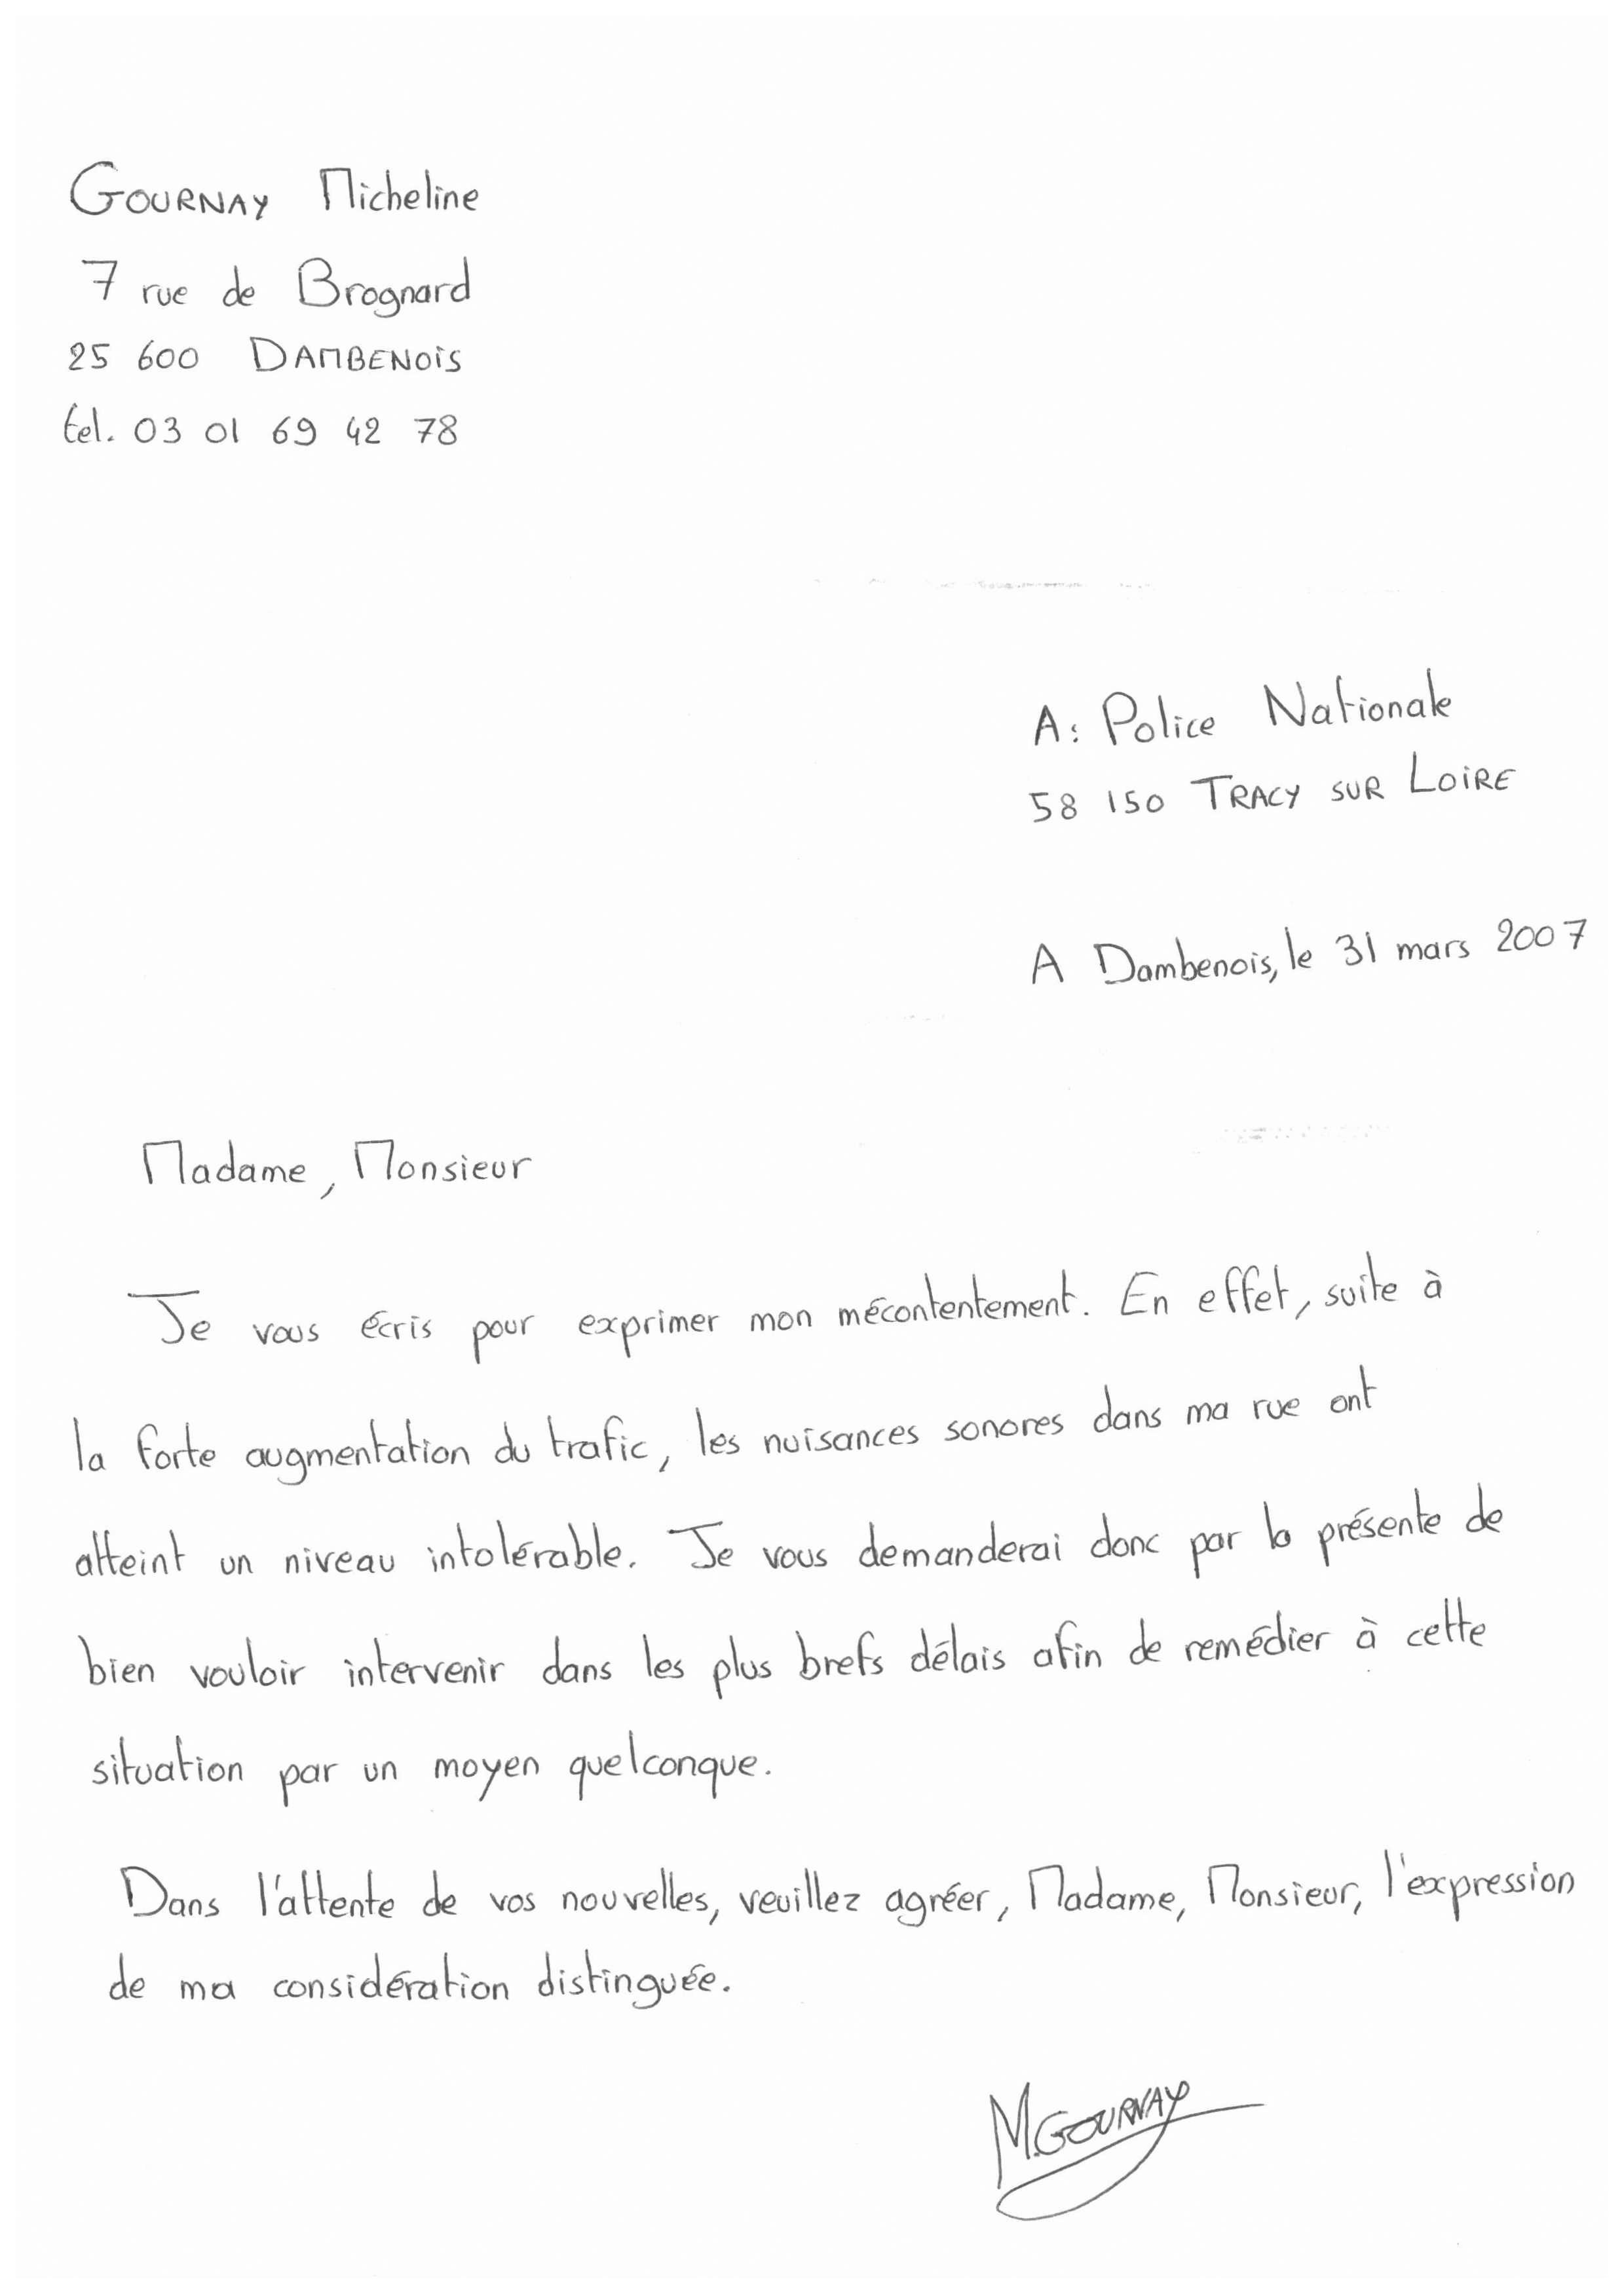 GOURNAY Micheline
7 rue de Brognard
25 600 DAMBENOIS
tel. 03 01 69 42 78
A: Police Nationale
58 150 TRACY SUR LOIRE
A Dambenois, le 31 mars 2007
Madame, Monsieur
Je vous écris pour exprimer mon mécontentement. En effet, suite à
la forte augmentation du trafic, les nuisances sonores dans ma rue ont
atteint un niveau intolérable. Je vous demanderai donc par la présente de
bien vouloir intervenir dans les plus brefs délais afin de remédier à cette
situation par un moyen quelconque.
Dans l'attente de vos nouvelles, veuillez agréer, Madame, Monsieur, l'expression
de ma considération distinguée.
M.GOURNAY